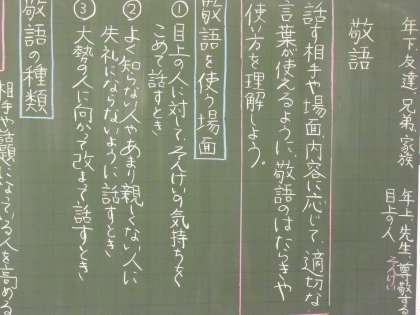 年下 友達、兄弟、家族 年上、先生、尊敬する
目上の人 そんけい
敬語
話す相手や場面、内容に応じて、適切な
言葉が使えるように、敬語のはたらきや
使い方を理解しよう。
敬語を使う場面
① 目上の人に対して、そんけいの気持ちを
こめて話すとき
② よく知らない人やあまり親しくない人に
失礼にならないように話すとき
③ 大勢の人に向かって改まって話すとき
敬語の種類
相手や話題になっている人を高める